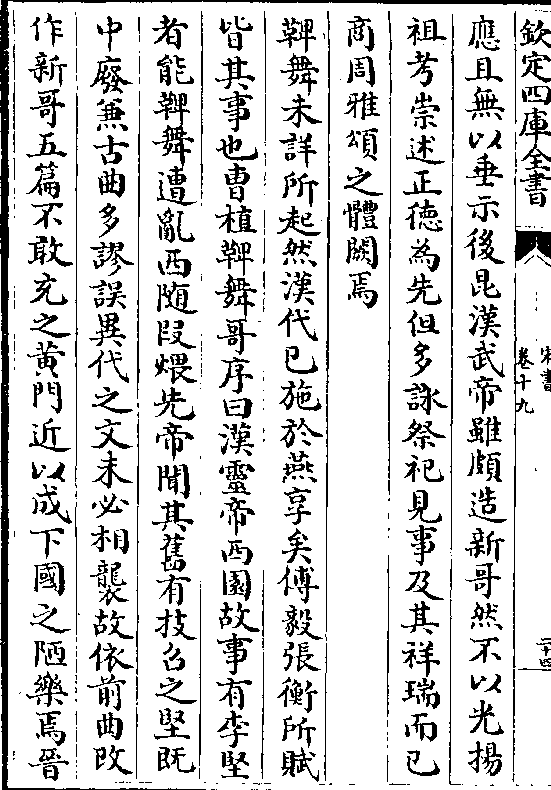 欽定四庫全書
宋書
卷十九
二十四
應且無以垂示後昆漢武帝雖頗造新哥然不以光揚
祖考崇述正德為先但多詠祭祀見事及其祥瑞而已
商周雅頌之體闕焉
鞞舞未詳所起然漢代已施於燕享矣傅毅張衡所賦
皆其事也曹植鞞舞哥序曰漢靈帝西園故事有李堅
者能鞞舞遭亂西隨段煨先帝聞其舊有技召之堅既
中廢兼古曲多謬誤異代之文未必相襲故依前曲改
作新哥五篇不敢充之黄門近以成下國之陋樂焉晉